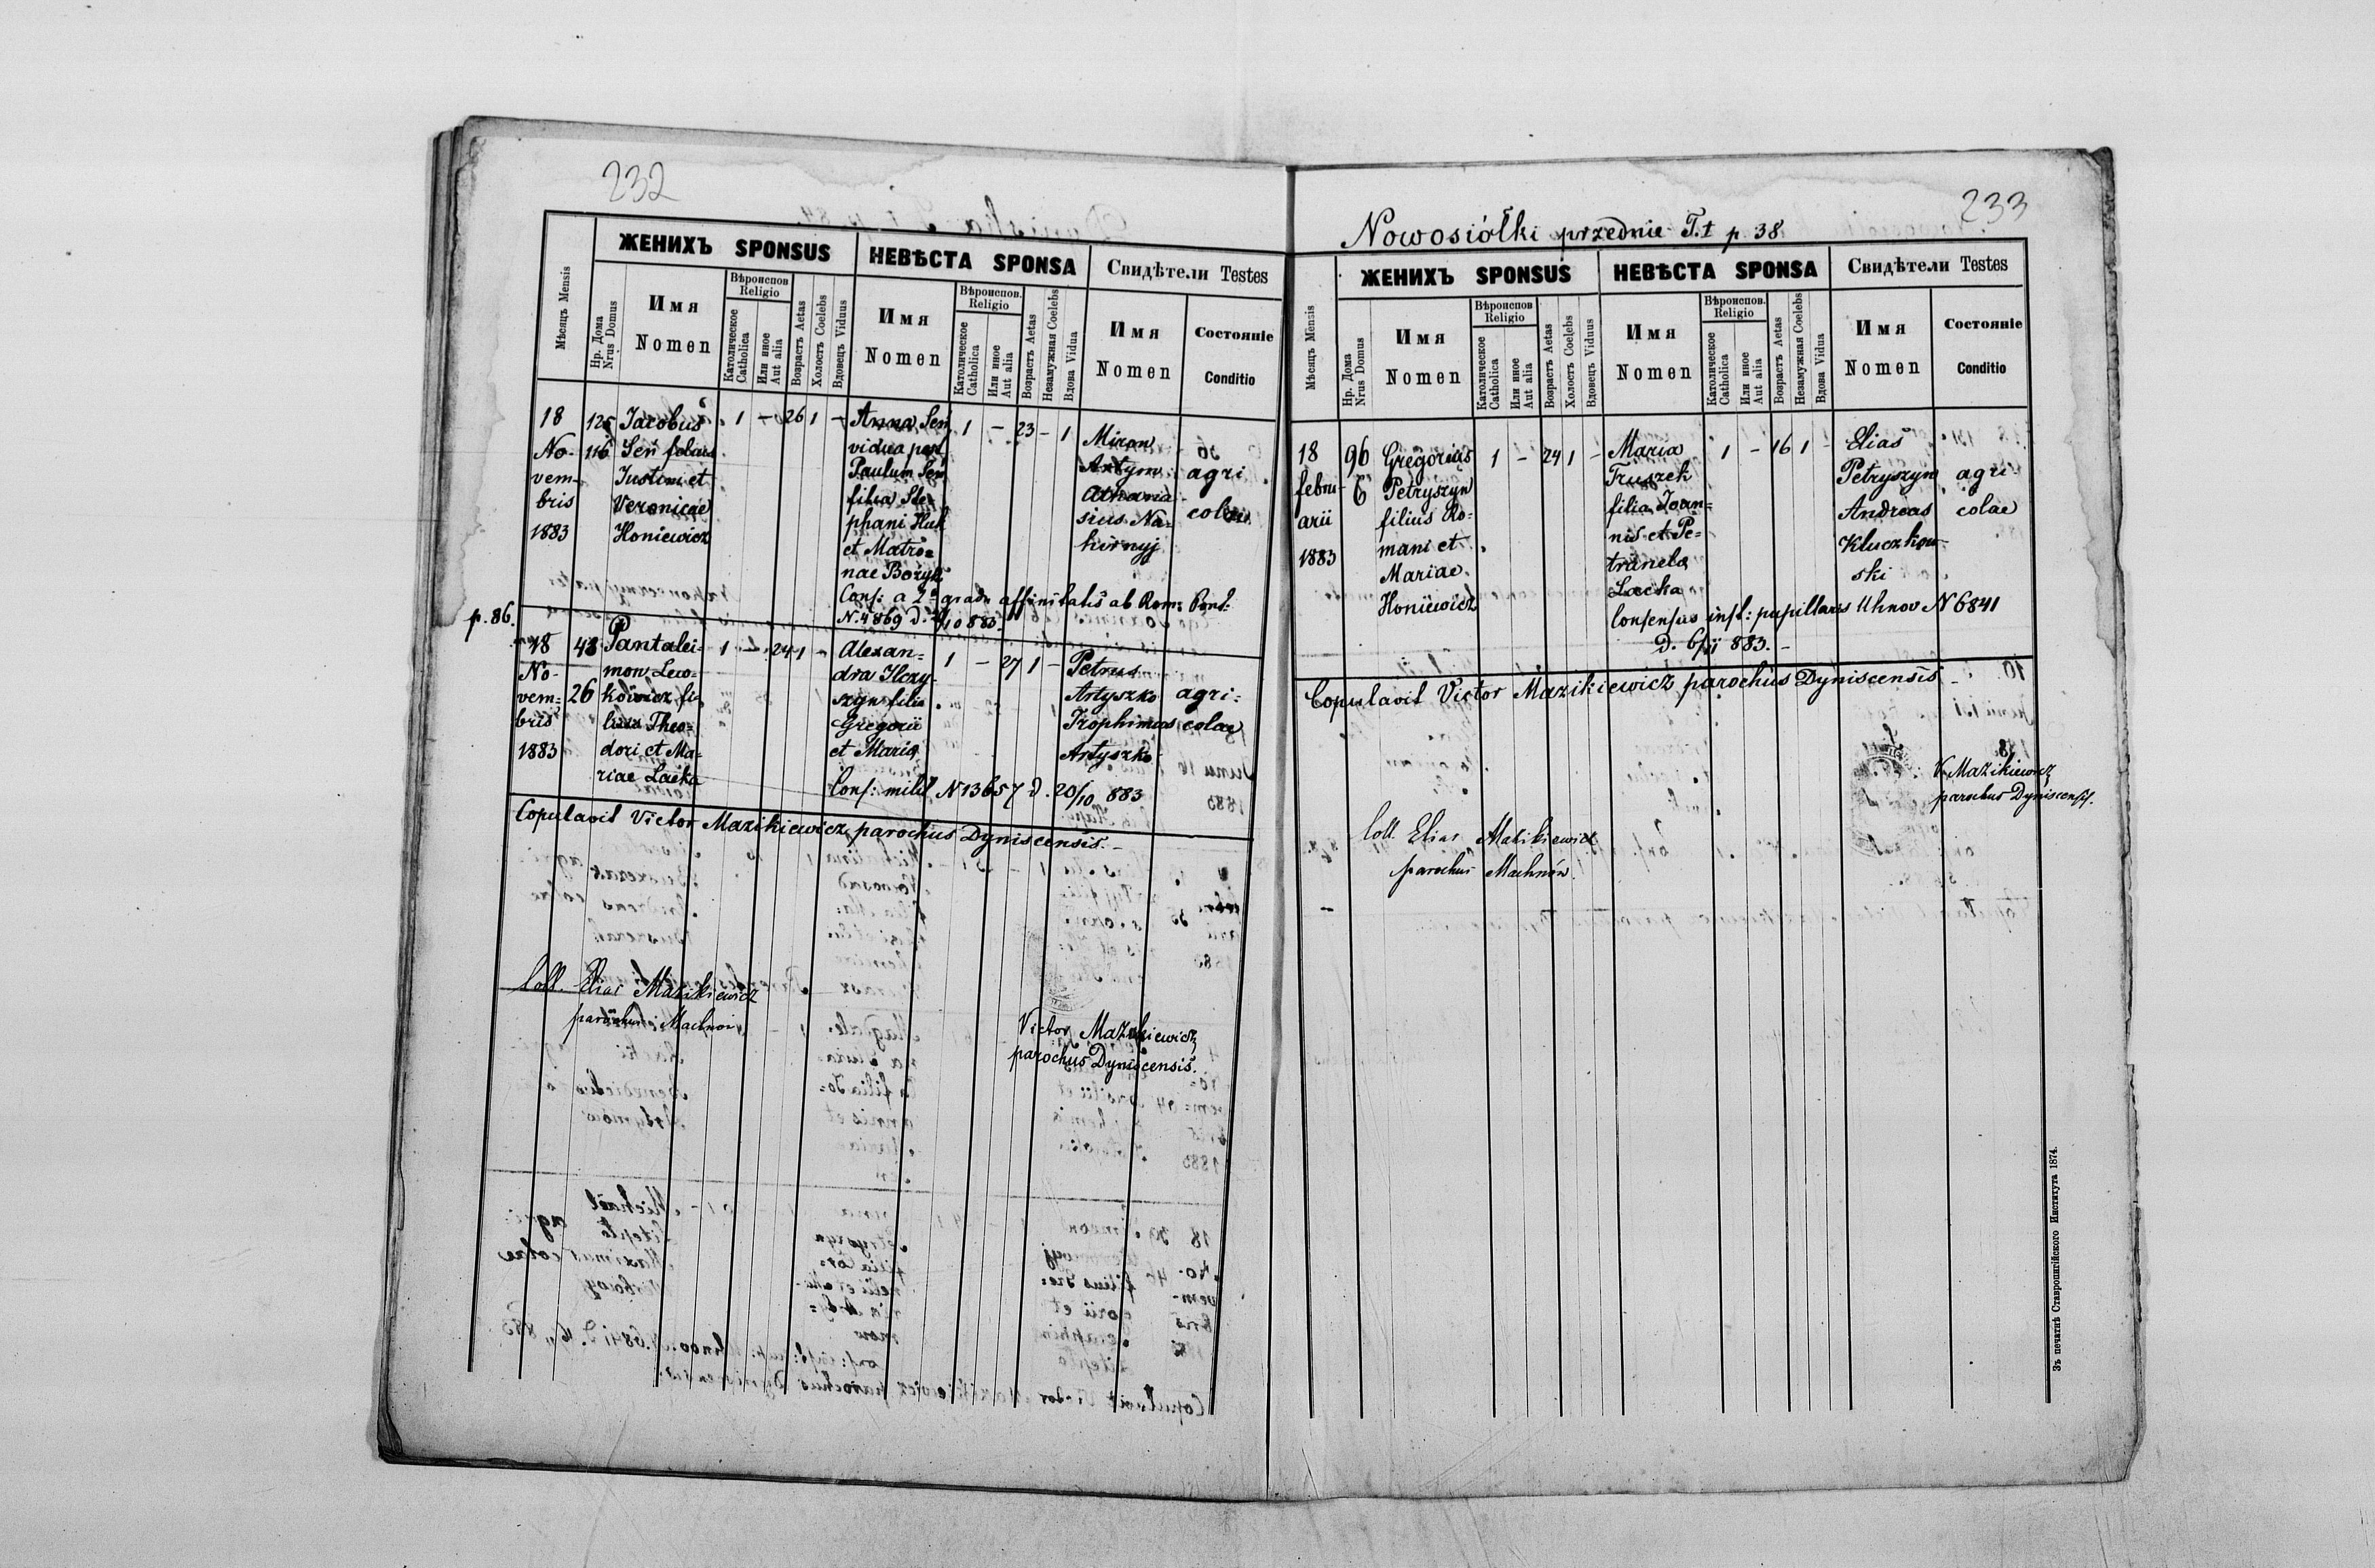 232
ЖЕНИХЪ SPONSUS НЕВѢСТА SPONSA Свидѣтели Testes
Мѣсяцъ Mensis
Нр. Дома Nrus Domus
Имя Nomen
Вѣроиспов Religio
Католическое Catholica
Или иное Aut alia
Возрастъ Aetas
Холостъ Coelebs
Вдовецъ Viduus
Имя Nomen
Вѣроиспов. Religio
Католическое Catholica
Или иное Aut alia
Возрастъ Aetas
Незамужная Coelebs
Вдова Vidua
Имя Nomen
Состояніе Conditio
18 No-vem-bris 1883
125 116
Jacobus
Señ
Justini et
Veronicae
Honiewicz
1 - 26 1 -
Anna Señ
vidua post
Paulum Señ
filia Ste-
phani Huk
et Matro=
nae Bozyk
1 - 23 - 1
Miron
Artym
Athana-
sius Na-
hirnyj
agri
colae
Cons: a 2º gradu affinitatis ab Rom: Pont:
N. 4869 d.
p. 86.
18 No-vem=bris 1883
43 26
Pantalei-
mon Lew-
kowicz fi-
lius Theo-
dori et Ma-
riae Lacka
1 - 24 1 -
Alexan=
dra Ilczy-
szyn filia
Gregorii
et Maria
1 - 27 1 -
Petrus
Artyszko
Trophimus
Artyszko
agri=
colae
Cons: milit N 13657 d. 20/10 883
Copulavit Victor Mazikiewicz parochus Dyniscensis.-
Coll. Elias Mazikiewicz
parochus Machnow
Victor Mazikiewicz
parochus Dyniscensis.
233
Nowosiółki przednie T.I p. 38
ЖЕНИХЪ SPONSUS НЕВѢСТА SPONSA Свидѣтели Testes
Мѣсяцъ Mensis
Нр. Дома Nrus Domus
Имя Nomen
Вѣроиспов Religio
Католическое Catholica
Или иное Aut alia
Возрастъ Aetas
Холостъ Coelebs
Вдовецъ Viduus
Имя Nomen
Вѣроиспов. Religio
Католическое Catholica
Или иное Aut alia
Возрастъ Aetas
Незамужная Coelebs
Вдова Vidua
Имя Nomen
Состояніе Conditio
18 febru-arii 1883
96
Gregorius
Petryszyn
filius Ro-
mani et
Mariae
Honiewicz
1 - 24 1 -
Maria
Truszek
filia Joan=
nis et Pe=
tranela
Lacka
1 - 16 1 -
Elias
Petryszyn
Andreas
Kluczkow-
ski
agri
colae
Consensus inst: pupillaris Uhnov N 6841
d. 883.-
Copulavit Victor Mazikiewicz parochus Dyniscensis
V. Mazikiewicz
parochus Dyniscens.
Coll. Elias Mazikiewicz
parochus Machnów.
Зъ печатнѣ Ставропигійского Института 1874.